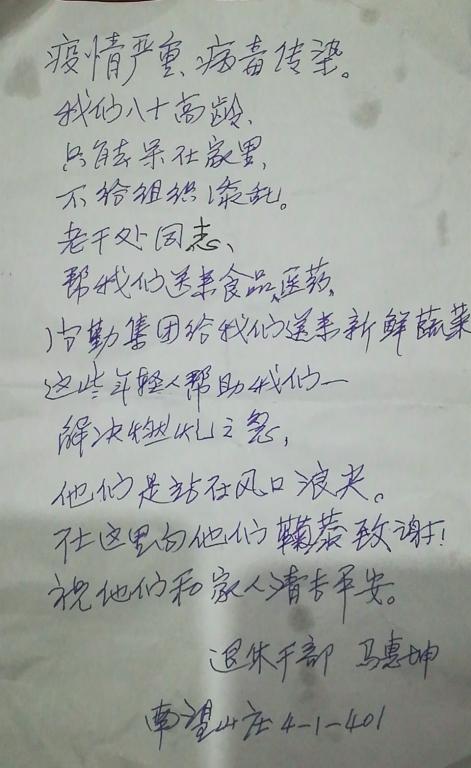 疫情严重、病毒传染。
我们八十高龄、
只能呆在家里,
不给组织添乱。
老干处同志、
帮我们送来食品,医药,
后勤集团给我们送来新鲜蔬菜
这些年轻人帮助我们—
解决燃眉之急,
他们是站在风口浪尖。
在这里向他们鞠恭致谢!
祝他们和家人清吉平安。
退休干部 马惠坤
南望山庄4-1-401